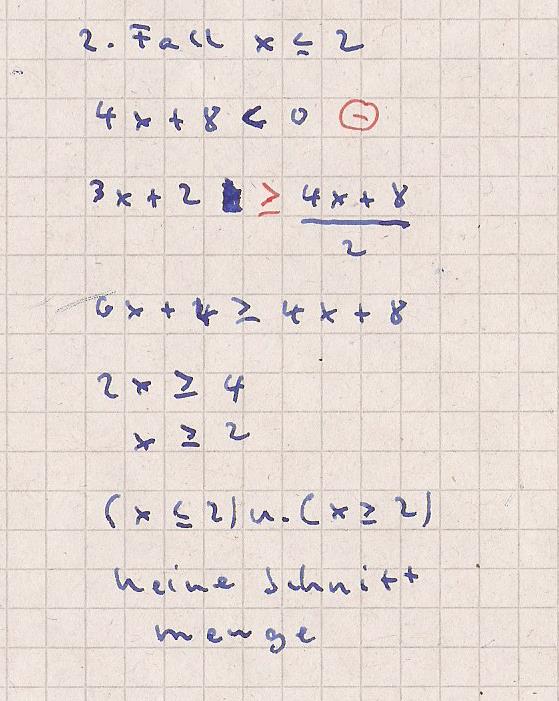 2. Fall x ≤ 2
4x + 8 < 0 ⊖
3x + 2 ≥ 4x + 8
2
6x + 4 ≥ 4x + 8
2x ≥ 4
x ≥ 2
(x ≤ 2) u. (x ≥ 2)
keine Schnitt
menge